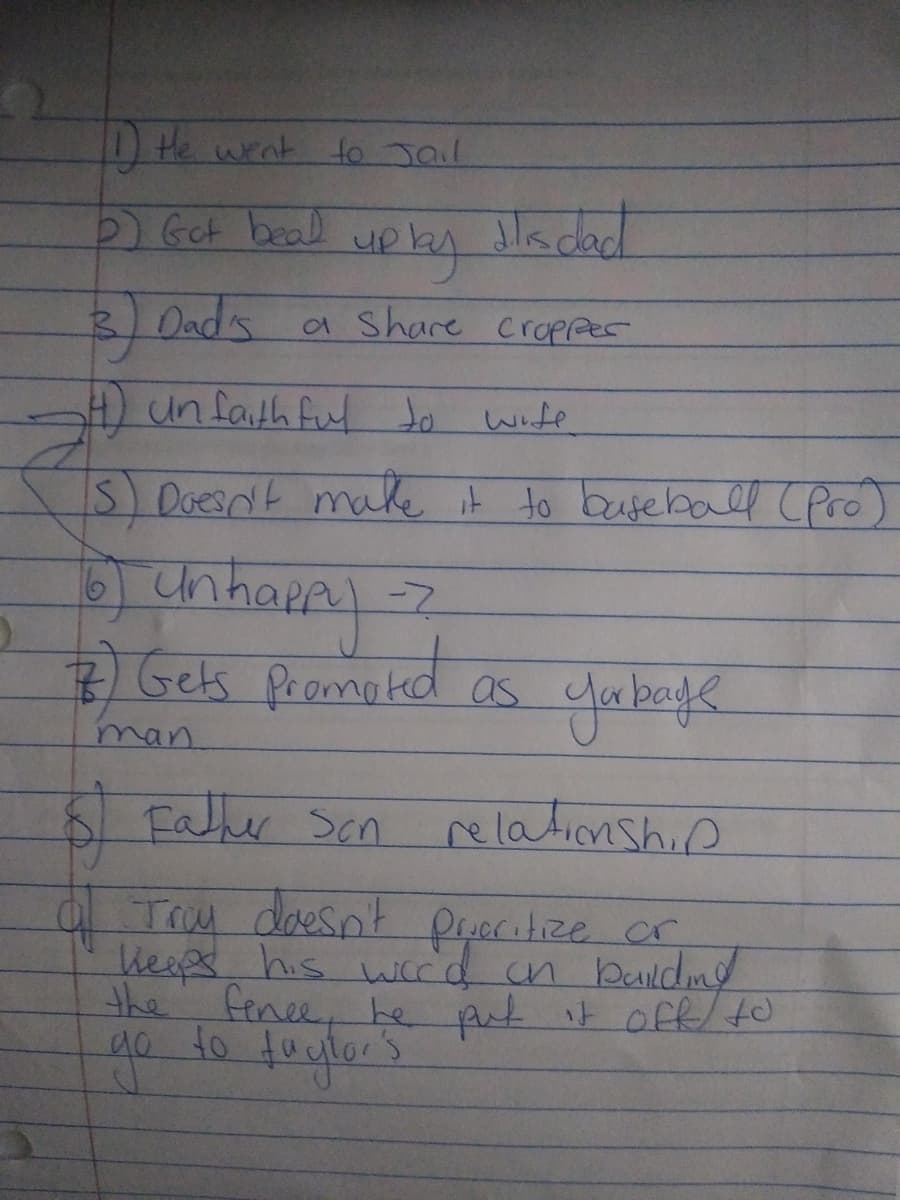 1) He went to Jail
2) Got beat up by his dad
3) Dad's a Share cropper
4) unfaithful to wife
5) Doesn't make it to baseball (Pro)
6) unhappy →
7) Gets promoted as garbage
man
8) Father Son relationship
9) Troy doesn't prioritize or
keeps his word on building
the fence, he put it off to
go to taylor's